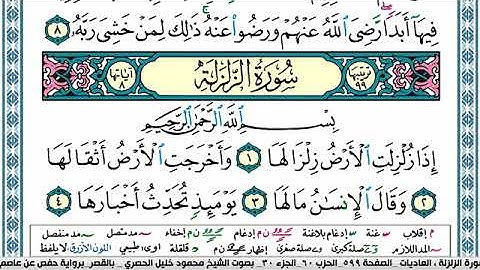 فِيهَآ أَبَدًا رَّضِىَ ٱللَّهُ عَنْهُمْ وَرَضُوا۟ عَنْهُ ذَٰلِكَ لِمَنْ خَشِىَ رَبَّهُۥ ٨
ترتيبها ٩٩ سُورَةُ الزَّلْزَلَةِ آياتها ٨
بِسْمِ ٱللَّهِ ٱلرَّحْمَٰنِ ٱلرَّحِيمِ
إِذَا زُلْزِلَتِ ٱلْأَرْضُ زِلْزَالَهَا ١ وَأَخْرَجَتِ ٱلْأَرْضُ أَثْقَالَهَا
٢ وَقَالَ ٱلْإِنسَٰنُ مَا لَهَا ٣ يَوْمَئِذٍ تُحَدِّثُ أَخْبَارَهَا ٤
إقلاب غنة إدغام بلاغنة إدغام إخفاء مد متصل مد منفصل
المد اللازم صلة كبرى صلة صغرى إظهار قلقلة طبيعي اللون الأزرق لا يلفظ
سورة الزلزلة ، العاديات _ الصفحة ٥٩٩ _ الحزب ٦٠ _ الجزء ٣٠ _ بصوت الشيخ محمود خليل الحصري _ بالقصر _ برواية حفص عن عاصم